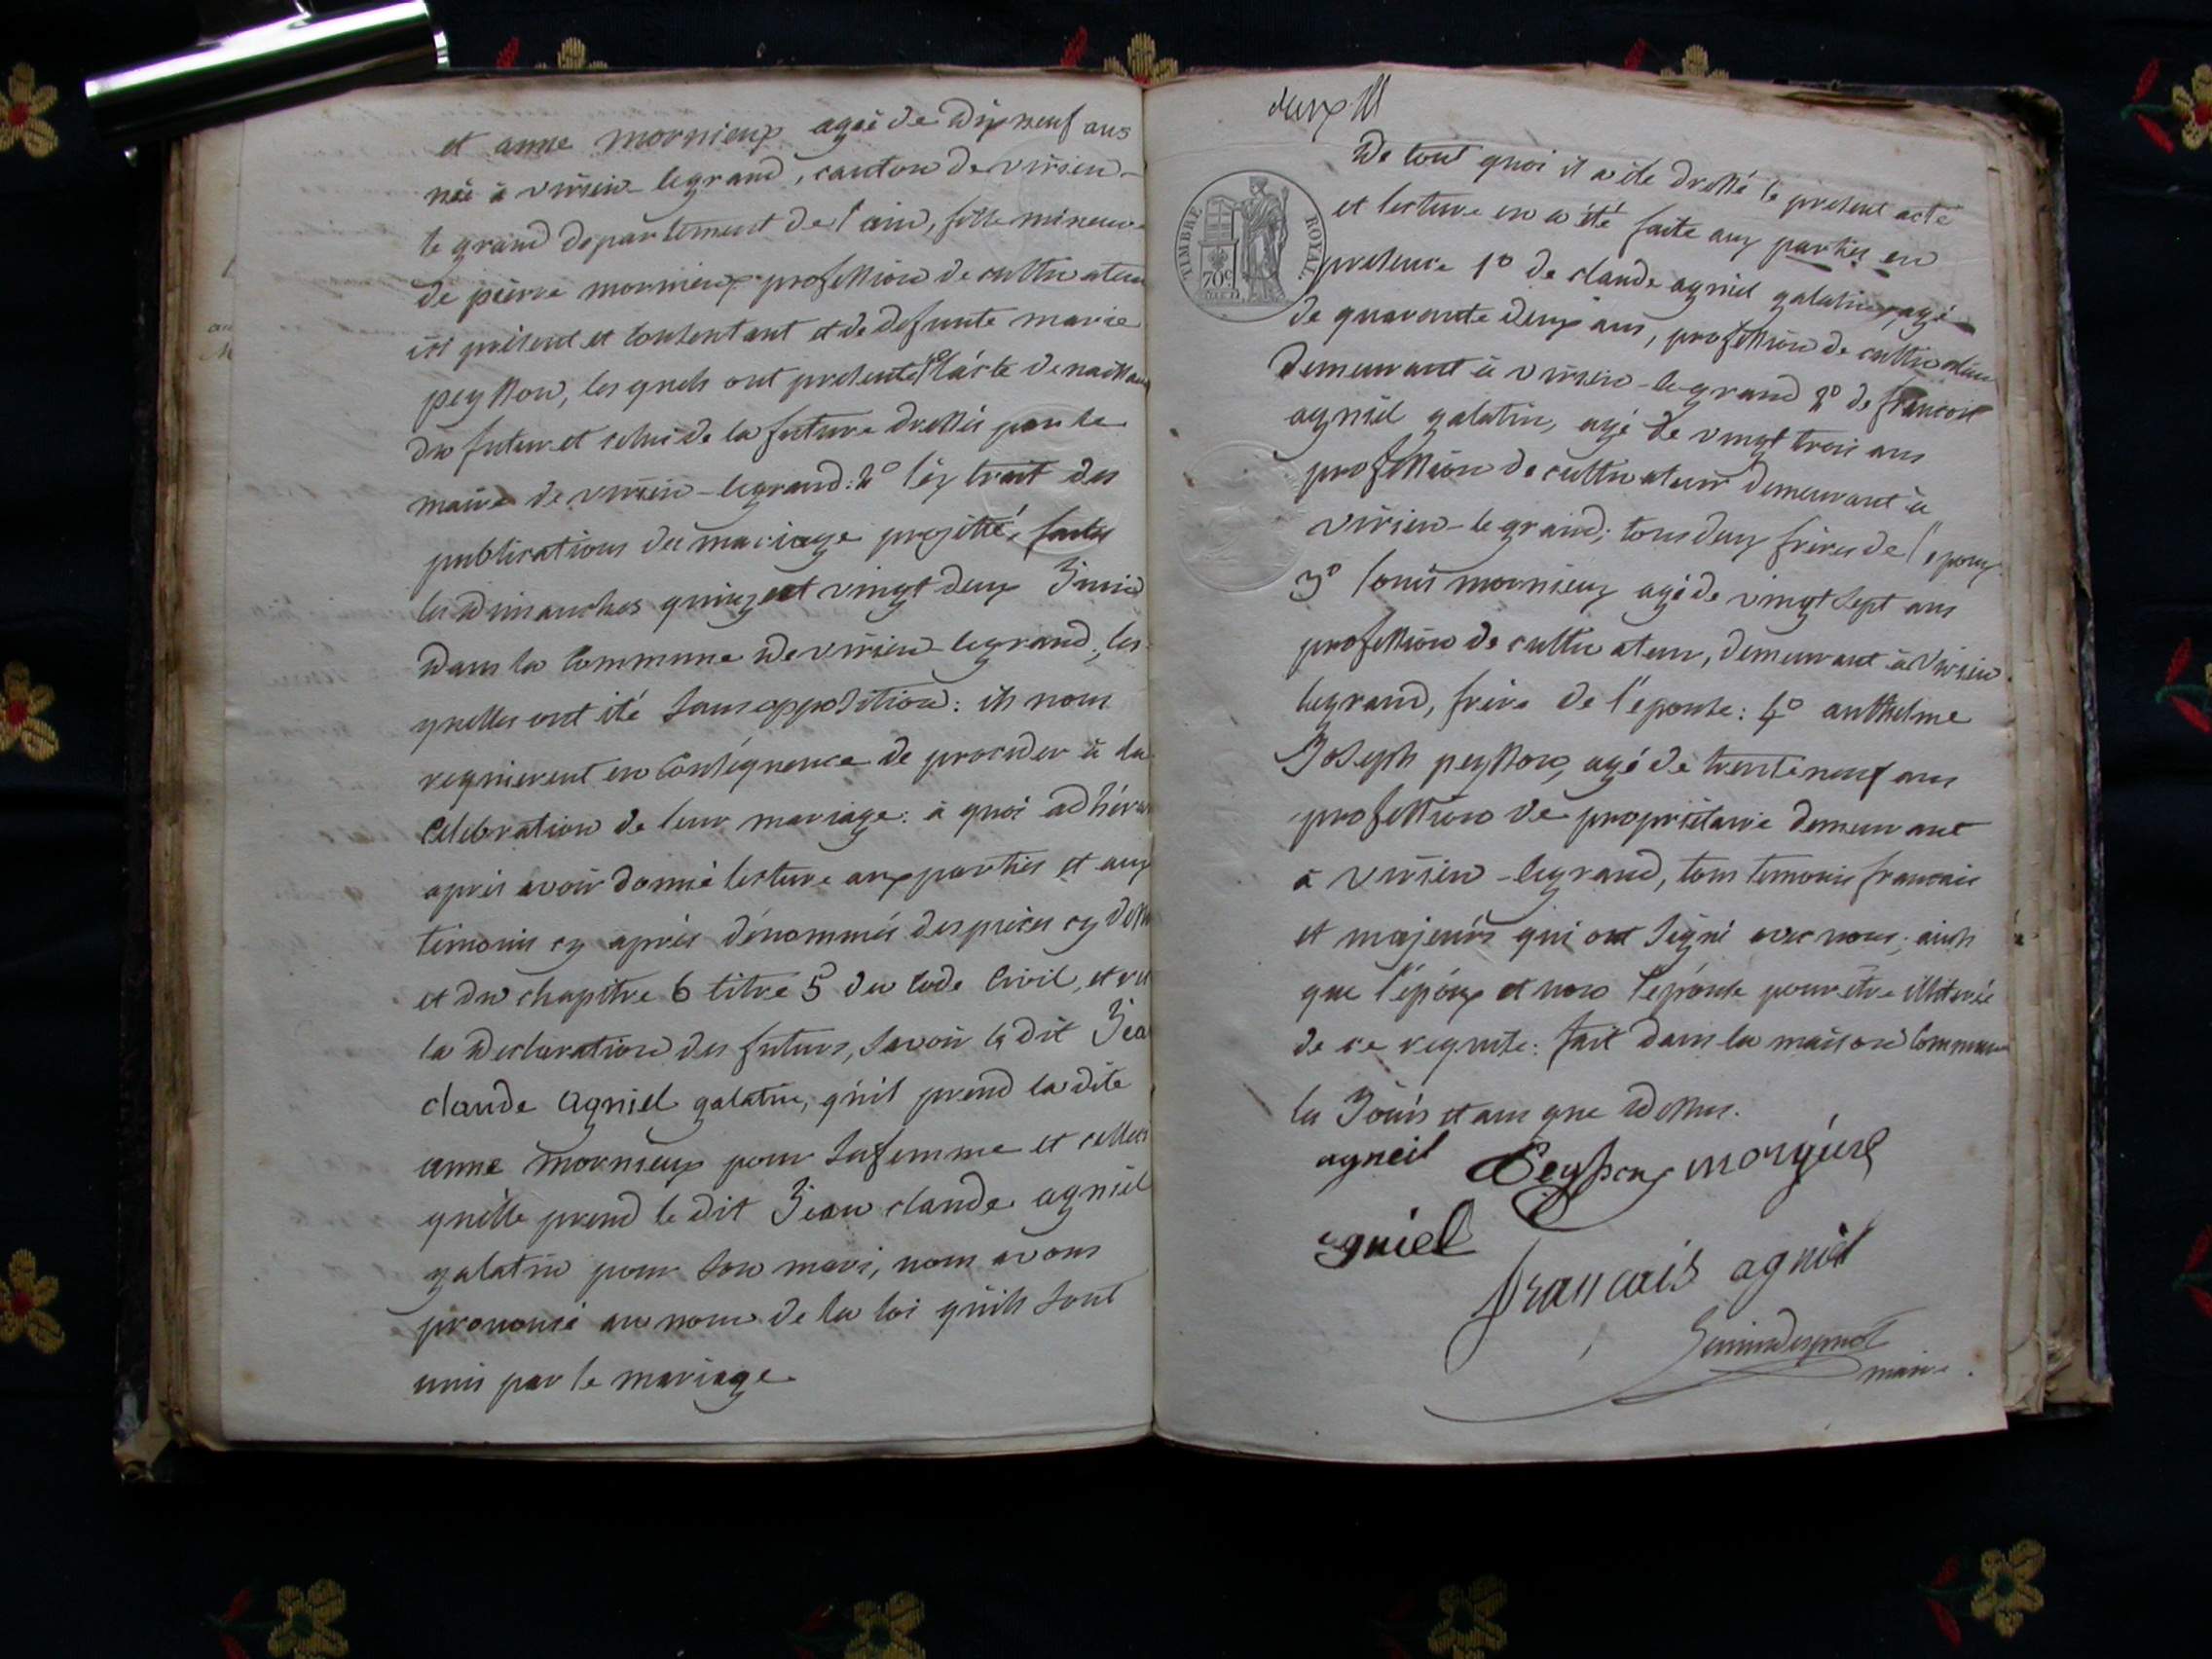 et anne mornieux agée de dixneuf ans
née à virieu-legrand, canton de virieu-
le grand departement de l'ain, fille mineure
de pierre mornieux profession de cultivateur
ici présent et consentant et de defunte marie
peysson, lesquels ont presenté 1º l'acte de naissan
du futur et celui de la future dressés par le
maire de virieu-legrand: 2º l'extrait des
publications de mariage projetté, faites
les dimanches quinze et vingt deux Juin
dans la Commune de virieu legrand, les
quelles ont été sans opposition: ils nous
requierent en Conséquence de proceder à la
Celebration de leur mariage: à quoi adhéran
après avoir donné lecture aux parties et aux
temoins cy après dénommés des pièces cy dess
et du chapitre 6 titre 5 du Code Civil, et
la declaration des futurs, savoir le dit Jea
claude agniel galatin, qu'il prend la dite
anne mornieux pour sa femme et celleci
qu'elle prend le dit Jean claude agniel
galatin pour son mari, nous avons
prononcé au nom de la loi qu'ils sont
unis par le mariage
deux
De tout quoi il a été dressé le present acte
et lecture en a été faite aux parties en
TIMBRE ROYAL
70c
presence 1º de claude agniel galatin, agé
de quarante deux ans, profession de cultivateur
demeurant à virieu-legrand 2º de francois
agniel galatin, agé de vingt trois ans
profession de cultivateur demeurant à
virieu-legrand; tous deux frères de l'epoux
3º louis mornieux agé de vingt sept ans
profession de cultivateur, demeurant à virieu
legrand, frère de l'epouse: 4º anthelme
Joseph peysson, agé de trente neuf ans
profession de propriétaire demeurant
à virieu-legrand, tous temoins francais
et majeurs qui ont signé avec nous; ainsi
que l'époux et non l'épouse pour être illitérée
de ce requise: fait dans la maison Commune
les Jour et an que dessus.
agneil Peysson mornieux
agniel
francais agniel
maire.